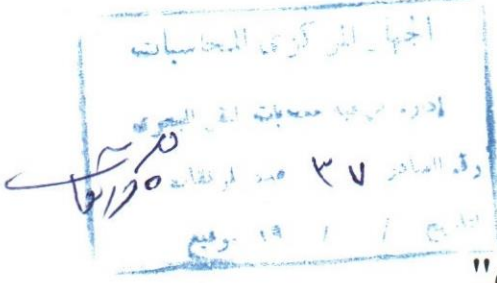 الجهاز المركزي للمحاسبات
إدارة مراقبة حسابات النقل البحري
رقم الصادر ٣٧ عدد المرفقات
التاريخ / / ١٩ توقيع
"